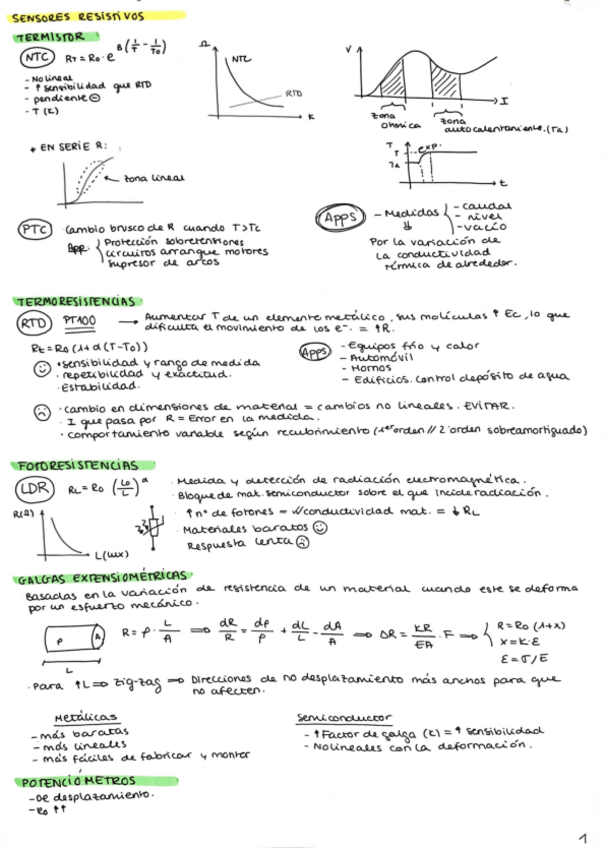 SENSORES RESISTIVOS
TERMISTOR
NTC RT = R0 · e^B(1/T - 1/T0)
- No lineal
- ↑ sensibilidad que RTD
- pendiente ⊖
- T (K)
Ω NTC RTD K
V I
zona ohmica zona autocalentamiento. (Ta)
* EN SERIE R:
zona lineal
T T exp. Ta t
PTC · Cambio brusco de R cuando T>Tc
App: Protección sobretensiones
circuitos arranque motores
supresor de arcos
Apps - Medidas - caudal
- nivel
- vacío
Por la variación de
la conductividad
térmica de alrededor.
TERMORESISTENCIAS
RTD PT100 → Aumentar T de un elemento metálico, sus moléculas ↑ Ec, lo que
dificulta el movimiento de los e-. = ↑R.
Rt = R0 (1+α(T-T0))
· sensibilidad y rango de medida
· repetibilidad y exactitud.
· Estabilidad.
Apps - Equipos frío y calor
- Automóvil
- Hornos
- Edificios. Control depósito de agua
· cambio en dimensiones de material = cambios no lineales. EVITAR.
· I que pasa por R = Error en la medida.
· comportamiento variable según recubrimiento (1er orden // 2º orden sobreamortiguado)
FOTORESISTENCIAS
LDR RL = R0 (L0/L)^α
· Medida y detección de radiación electromagnética.
· Bloque de mat. semiconductor sobre el que incide radiación.
R(Ω) L(lux)
· ↑ nº de fotones = conductividad mat. = ↓ RL
· Materiales baratos ☺
Respuesta lenta ☹
GALGAS EXTENSIOMÉTRICAS
Basadas en la variación de resistencia de un material cuando este se deforma
por un esfuerzo mecánico.
ρ A L R = ρ · L/A ⇒ dR/R = dρ/ρ + dL/L - dA/A ⇒ ΔR = KR/EA · F ⇒ R = R0 (1+x)
x = K·ε
ε = σ/E
· Para ↑L ⇒ zig-zag ⇒ Direcciones de no desplazamiento más anchos para que
no afecten.
Metálicas
- más baratas
- más lineales
- más fáciles de fabricar y montar
Semiconductor
- ↑ Factor de galga (K) = ↑ sensibilidad
- No lineales con la deformación.
POTENCIÓMETROS
- De desplazamiento.
- R0 ↑↑
1